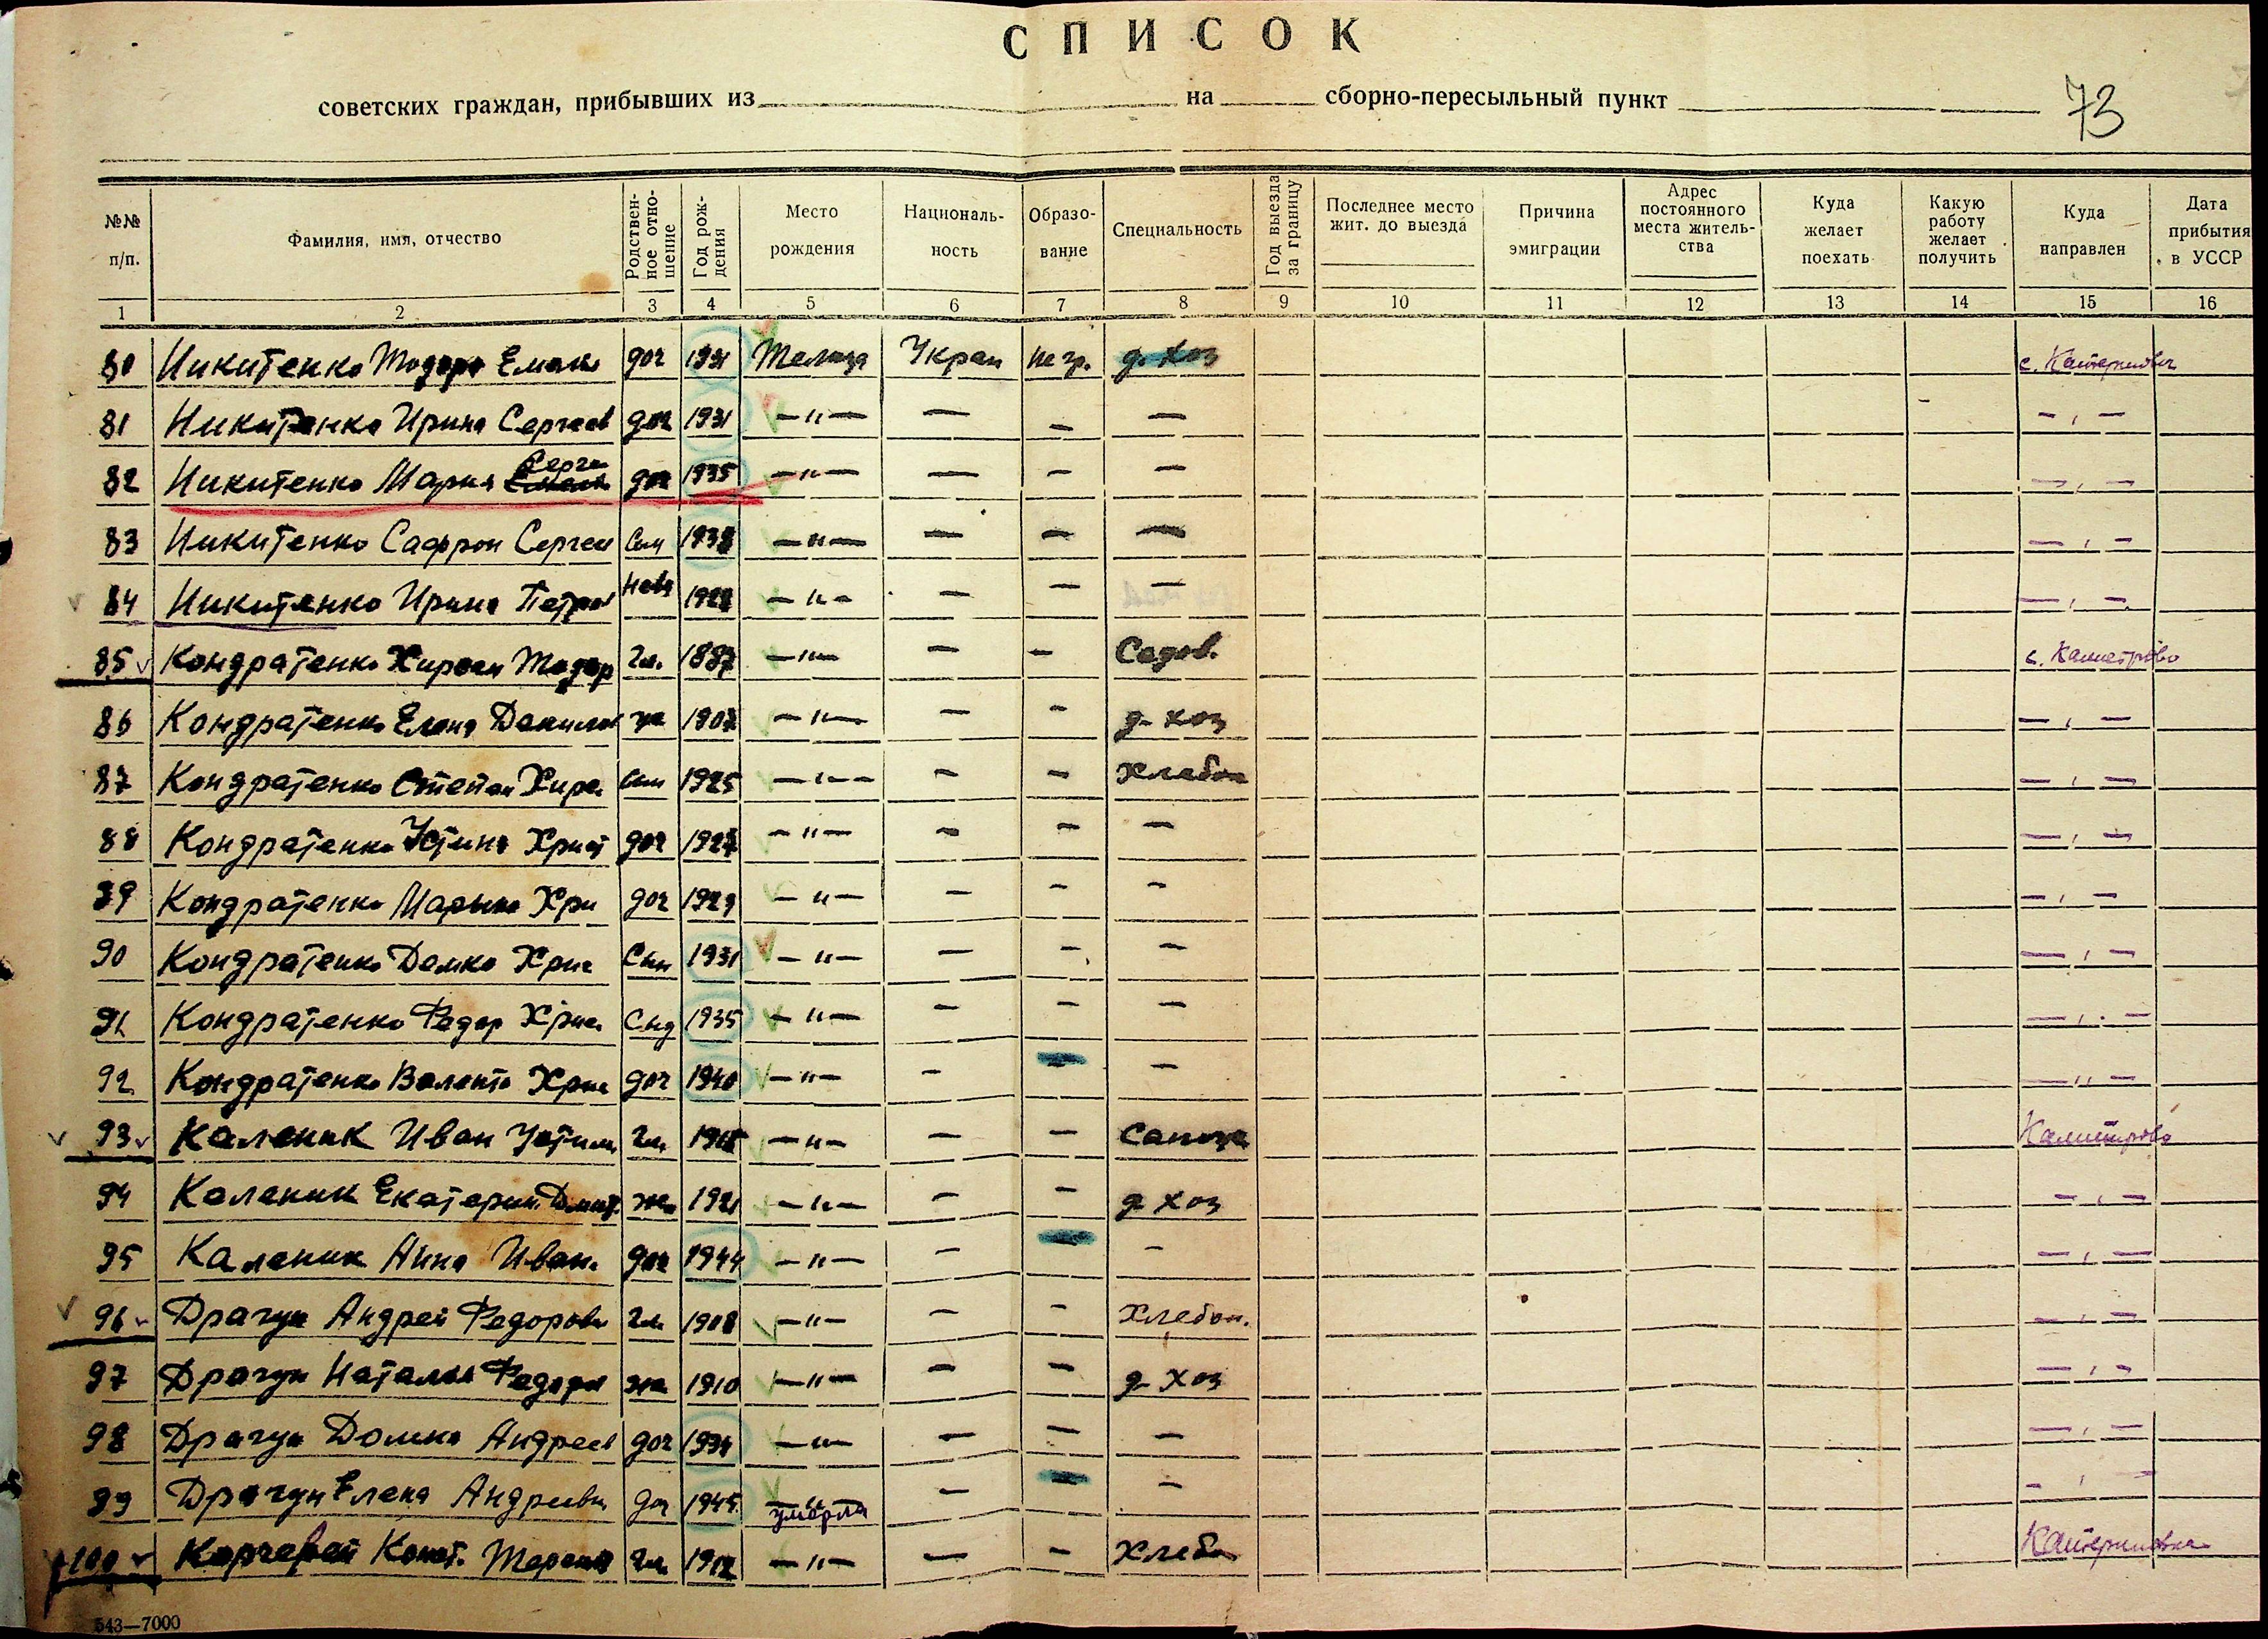 СПИСОК
73
советских граждан, прибывших из на сборно-пересыльный пункт
№№ п/п. Фамилия, имя, отчество Родственное отношение Год рождения Место рождения Национальность Образование Специальность Год выезда за границу Последнее место жит. до выезда Причина эмиграции Адрес постоянного места жительства Куда желает поехать Какую работу желает получить Куда направлен Дата прибытия в УССР
1 2 3 4 5 6 7 8 9 10 11 12 13 14 15 16
80 Никитенко Тодора Емельян доч 1931 Украин негр. д. хоз
81 Никитенко Ирина Сергеев доч 1931 —"— — — — — , —
82 Никитенко Мария Серге доч 1935 —"— — — — — , —
83 Никитенко Сафрон Сергеи Сын 1938 —"— — — — — , —
84 Никитенко Ирина Петров 1928 —"— — — — — , —
85 Кондратенко Тодор Гл. 1887 —"— — — Садов.
86 Кондратенко Елена Данилов ж 1907 —"— — — д. хоз — , —
87 Кондратенко Степан Сын 1925 —"— — — Хлебоп — , —
88 Кондратенко Устина Христ доч 1927 —"— — — — — , —
89 Кондратенко Марьяна Хри доч 1929 —"— — — — — , —
90 Кондратенко Демко Хрис Сын 1931 —"— — — — — , —
91 Кондратенко Федор Хрис 1935 —"— — — — — , —
92 Кондратенко Валента Хрис доч 1940 —"— — — — —"—
93 Каленик Иван Устим Гл. —"— — — Сапож Калитрово
94 Каленик Екатерин. Дмит. ж. 1921 —"— — — д. хоз — , —
95 Каленик Анна Иван. доч 1944 —"— — — — — , —
96 Драгун Андрей Федорови Гл. 1908 —"— — — Хлебоп. — , —
97 Драгун Наталья Федоров жа 1910 —"— — — д. хоз — , —
98 Драгун Домна Андреев доч 1934 —"— — — — — , —
99 Драгун Елена Андреевн доч 1945 —"— умерла — — — — , —
100 Конст. Терент Гл. 1912 —"— — — Хлебо
543—7000